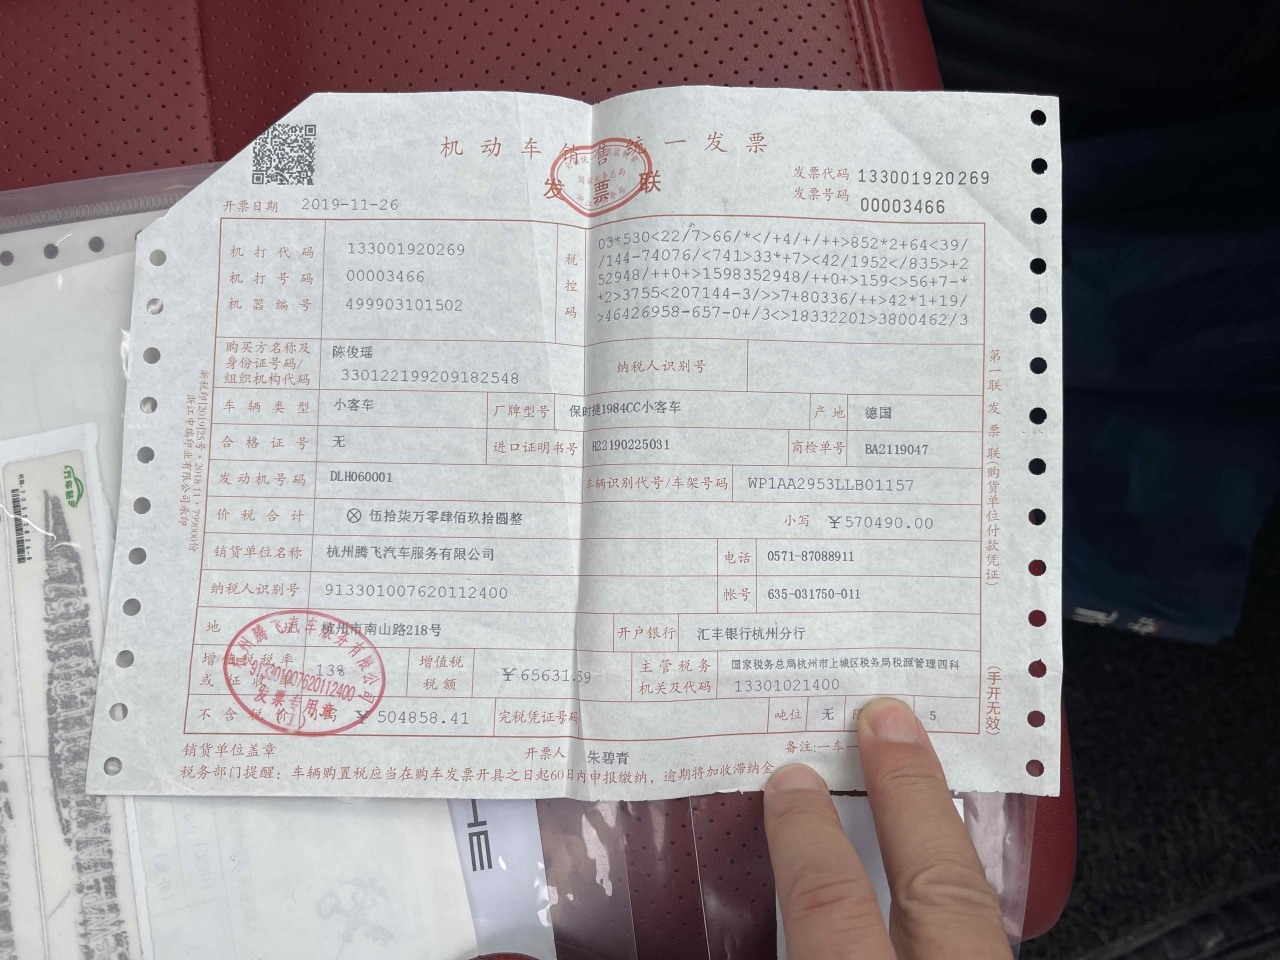 机动车销售统一发票
发票联
发票代码 133001920269
发票号码 00003466
开票日期 2019-11-26
机打代码 133001920269
机打号码 00003466
机器编号 499903101502
税控码
03*530<22/7>66/*</+4/+/++>852*2+64<39/
/144-74076/<741>33*+7><42/1952</835>+2
52948/++0+>1598352948/++0+>159<>56+7-*
*2>3755<207144-3/>>7+80336/++>42*1+19/
>46426958-657-0+/3<>18332201>3800462/3
购买方名称及身份证号码/组织机构代码 陈俊瑶 330122199209182548
纳税人识别号
车辆类型 小客车 厂牌型号 保时捷1984CC小客车 产地 德国
合格证号 无 进口证明书号 H22190225031 商检单号 BA2119047
发动机号码 DLH060001 车辆识别代号/车架号码 WP1AA2953LLB01157
价税合计 ⊗ 伍拾柒万零肆佰玖拾圆整 小写 ¥570490.00
销货单位名称 杭州腾飞汽车服务有限公司 电话 0571-87088911
纳税人识别号 913301007620112400 帐号 635-031750-011
地址 杭州市南山路218号 开户银行 汇丰银行杭州分行
增值税税率或征收率 13% 增值税税额 ¥65631.59 主管税务机关及代码 国家税务总局杭州市上城区税务局税源管理四科 13301021400
不含税价 ¥504858.41 完税凭证号码 吨位 无 5
销货单位盖章 开票人 朱碧青 备注:一车一
税务部门提醒：车辆购置税应当在购车发票开具之日起60日内申报缴纳，逾期将加收滞纳金
第一联 发票联(购货单位付款凭证)
(手开无效)
杭州腾飞汽车服务有限公司
913301007620112400
发票专用章
国家税务总局